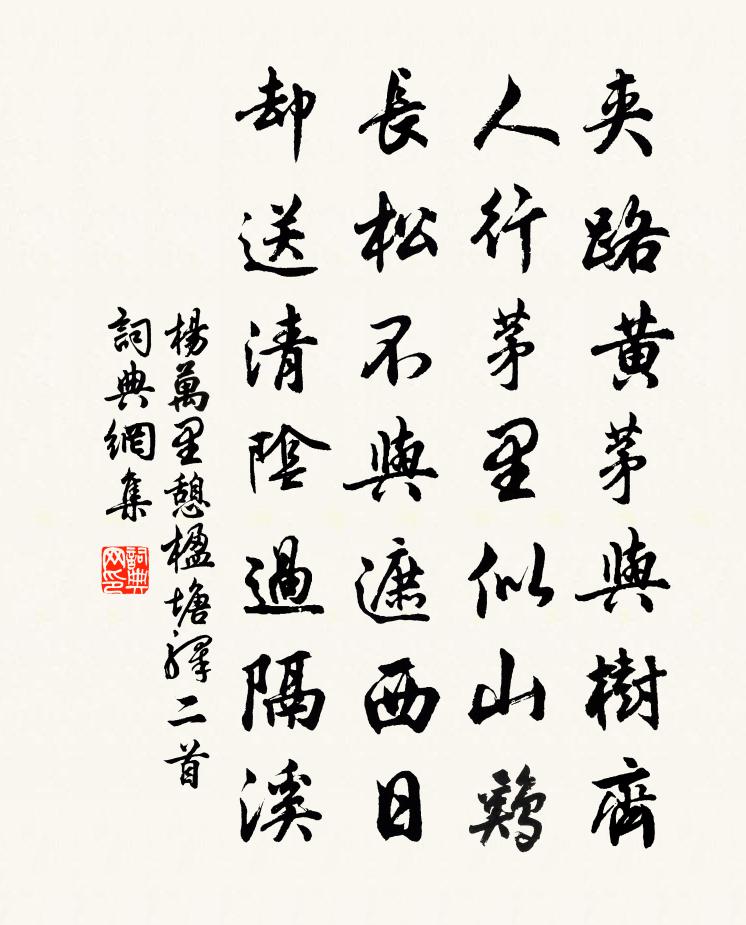 夾路黃茅與樹齊
人行茅里似山鷄
長松不與遮西日
却送清陰過隔溪
楊萬里憩楹塘驛二首
詞典網集
詞典网印